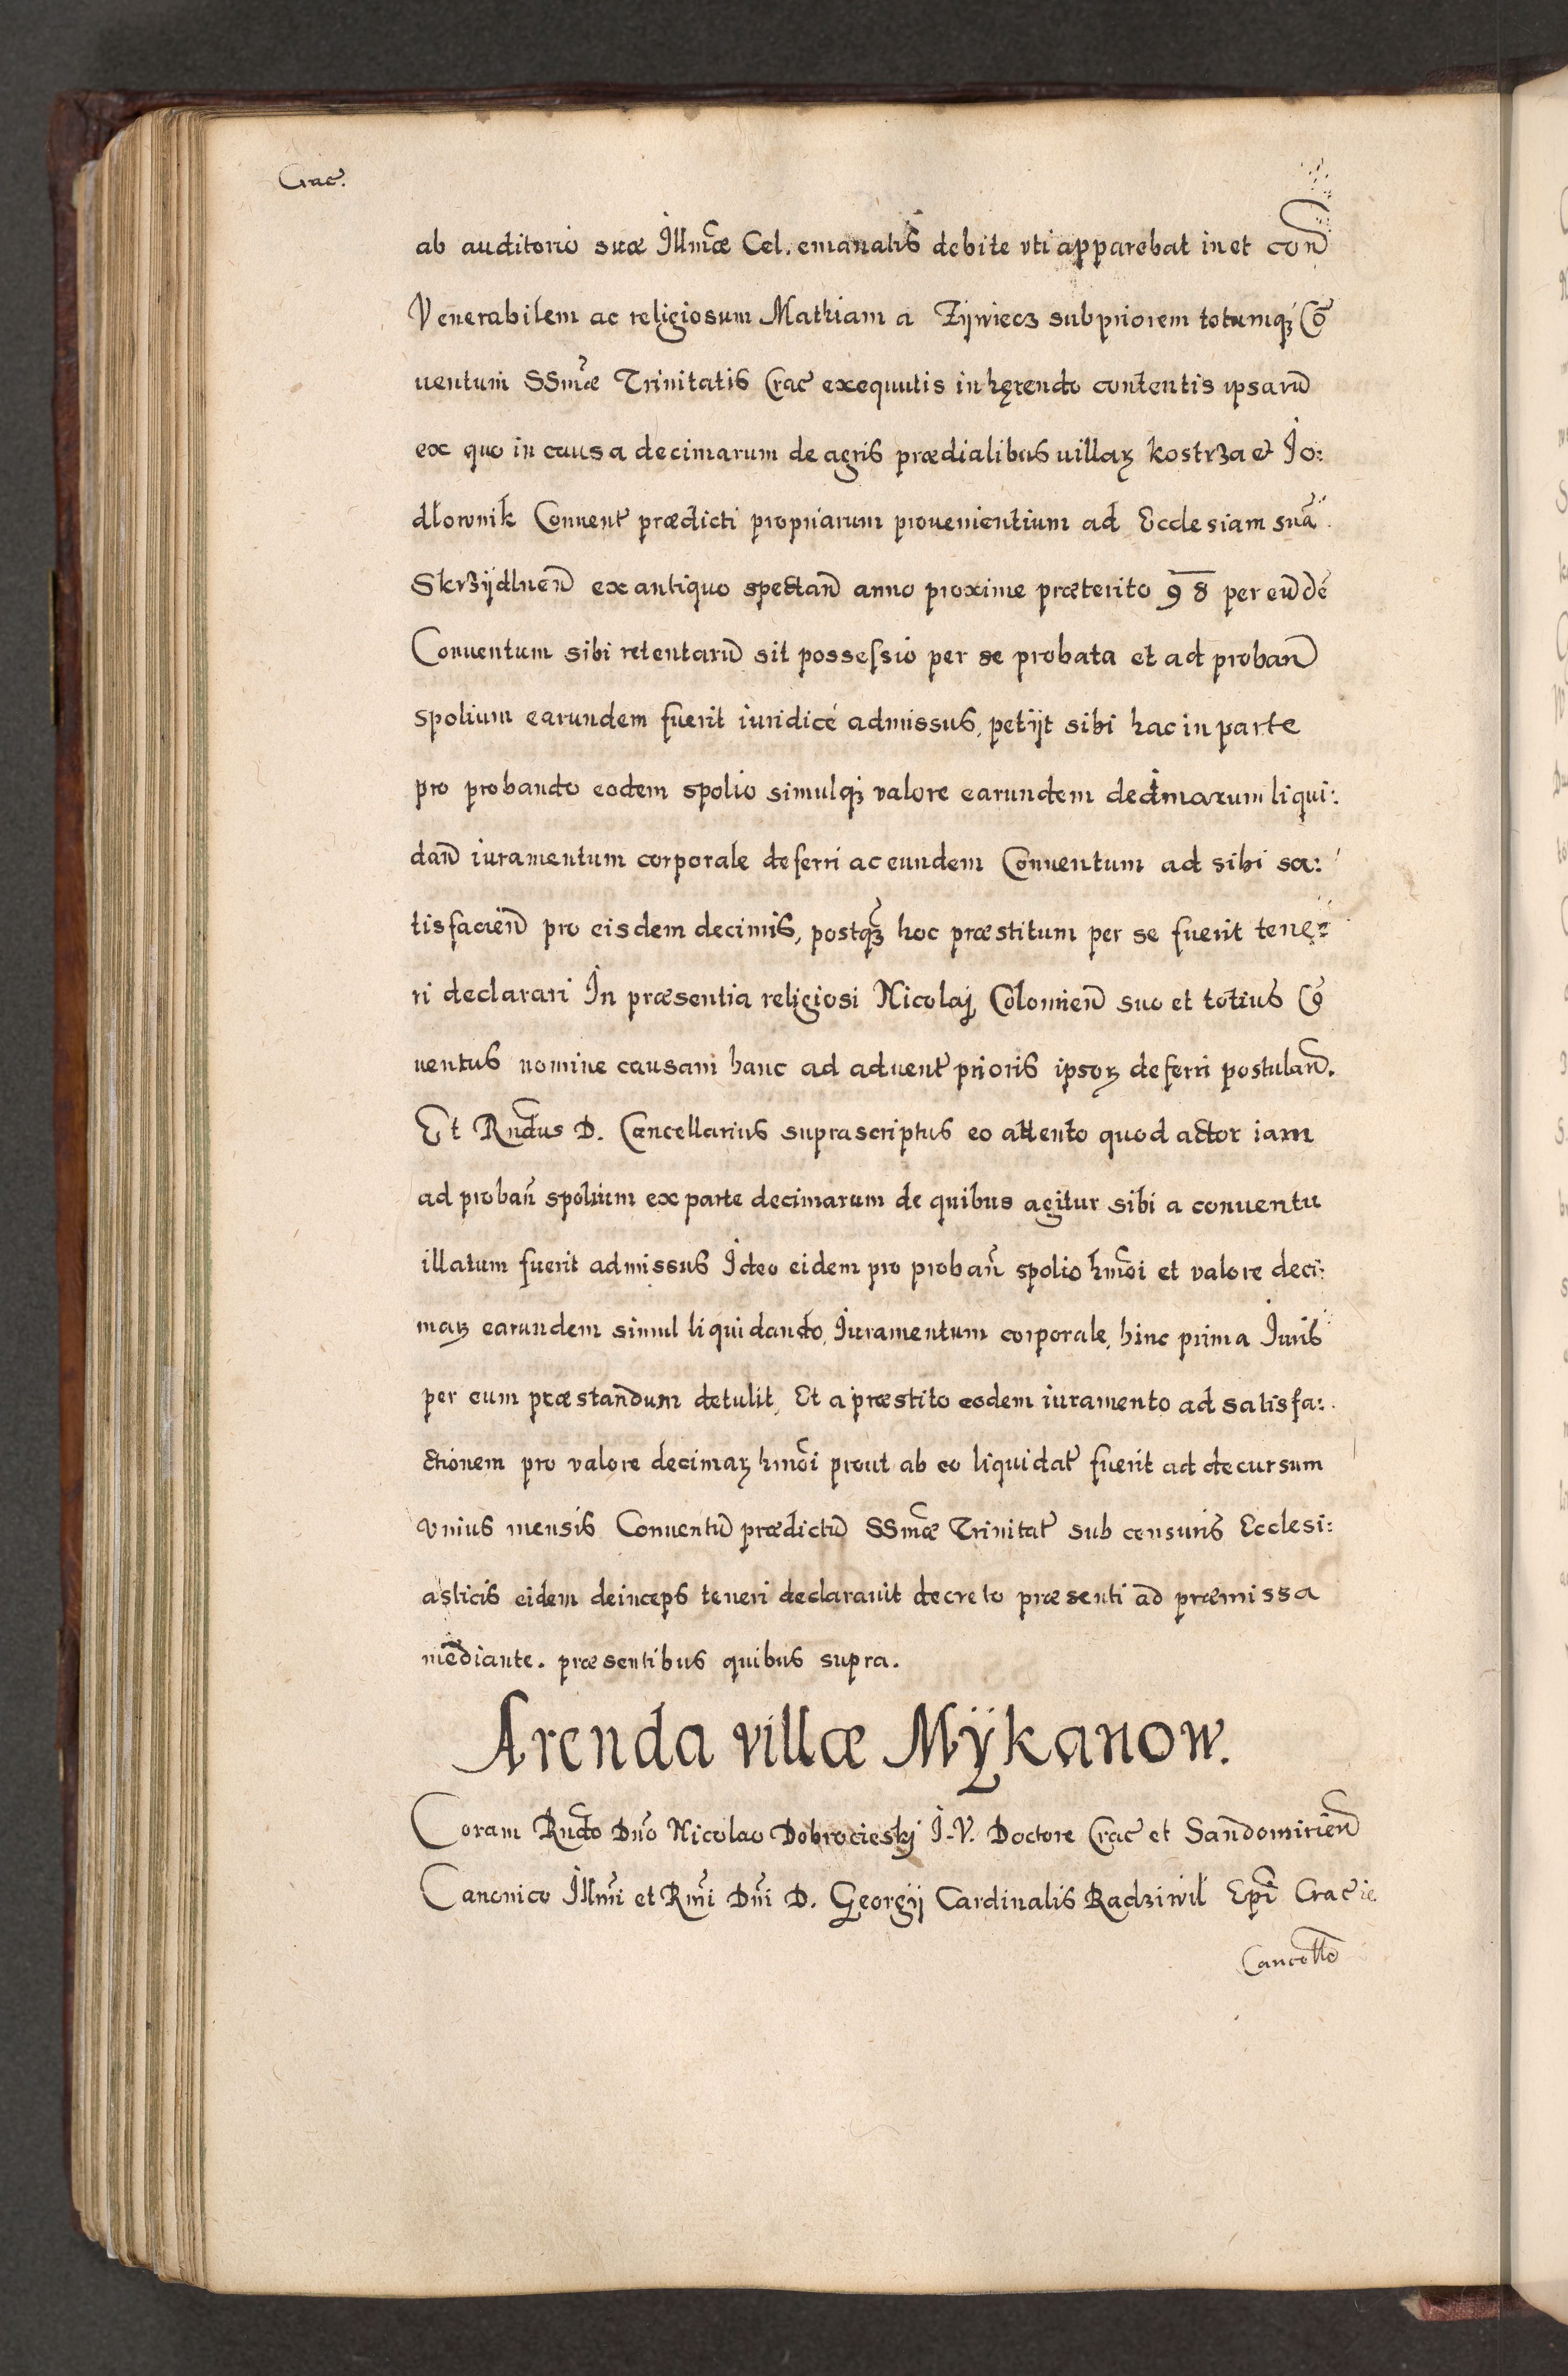 Crac̃.
ab auditorio suæ Illm̃æ Cel. emanatis debite vti apparebat in et con̄
Venerabilem ac religiosum Mathiam a Zijwiecz subpriorem totumqꝫ Cō
uentum SSm̃æ Trinitatis Crac̃ exequutis inhęrendo contentis ipsarū
ex quo in causa decimarum de agris prædialibus uillaꝝ kostrza et Jo:
dłownik Conuent̃ prædicti propriarum prouenientium ad Ecclesiam suā
Skrzÿdlnen̄ ex antiquo spectan̄ anno proxime præterito 98 per eūdē
Conuentum sibi retentarū sit possessio per se probata et ad proban̄
spolium earundem fuerit iuridicé admissus, petijt sibi hac in parte
pro probando eodem spolio simulqꝫ valore earundem decimarum liqui:
dan̄ iuramentum corporale deferri ac eundem Conuentum ad sibi sa:
tisfacien̄ pro eisdem decimis, postqꝫ̃ hoc præstitum per se fuerit tene:
ri declarari In præsentia religiosi Nicolaj Colomien̄ suo et totius Cō
uentus nomine causam hanc ad aduent̃ prioris ipsoꝝ deferri postulan̄.
Et Rn̄dus D. Cancellarius suprascriptus eo attento quod actor iam
ad proban̄ spolium ex parte decimarum de quibus agitur sibi a conuentu
illatum fuerit admissus Ideo eidem pro proban̄ spolio hm̄oi et valore deci:
maꝝ earundem simul liquidando, Iuramentum corporale, hinc prima Iuris
per eum præstandum detulit, Et a præstito eodem iuramento ad satisfa:
ctionem pro valore decimaꝝ hm̄oi prout ab eo liquidat̃ fuerit ad decursum
vnius mensis Conuentū prædictū SSm̃æ Trinitat̃ sub censuris Ecclesi:
asticis eidem deinceps teneri declarauit decreto præsenti ad præmissa
mediante. præsentibus quibus supra.
Arenda villæ Mÿkanow.
Coram Rn̄do Dn̄o Nicolao Dobrocieskj I.V. Doctore Crac̃ et Sandomirien̄
Canonico Illm̃i et Rm̃i Dn̄i D. Georgij Cardinalis Radziwil Ep̄i Crac̃ie.
Cancell̄o